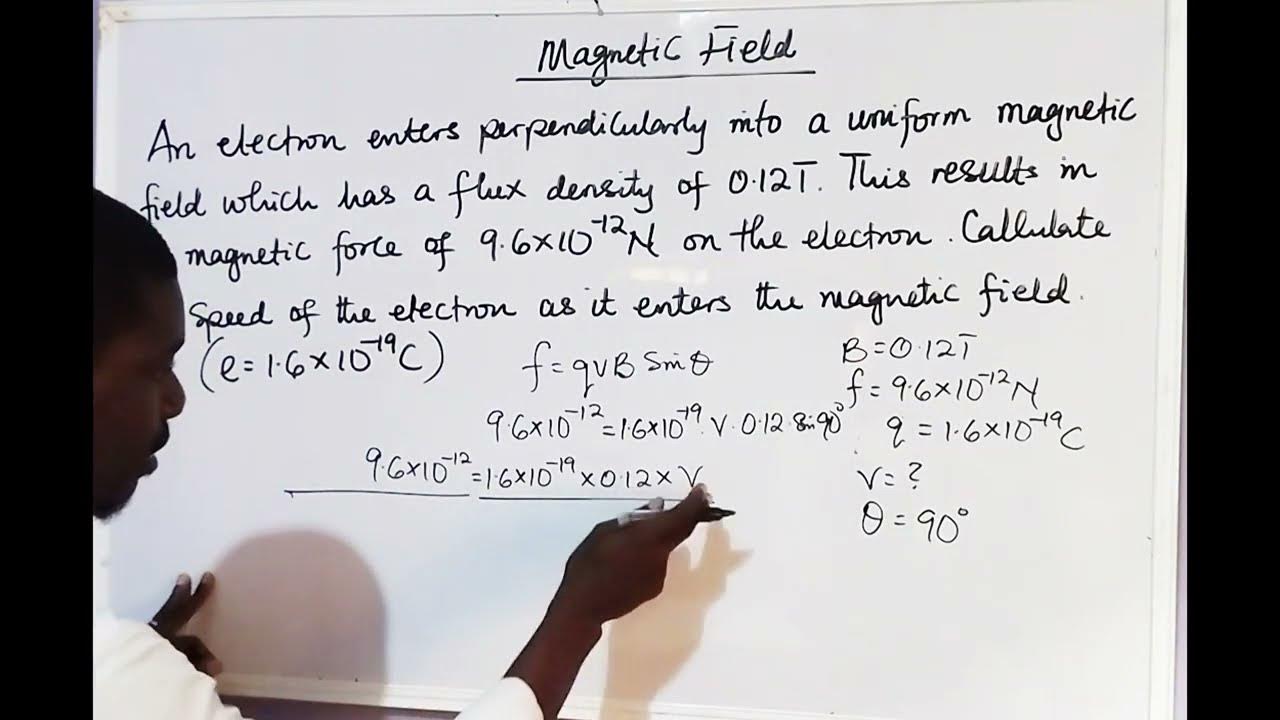 Magnetic Field
An electron enters perpendicularly into a uniform magnetic
field which has a flux density of 0.12T. This results in
magnetic force of 9.6×10⁻¹²N on the electron. Callulate
Speed of the electron as it enters the magnetic field.
(e=1.6×10⁻¹⁹C)
f=qvB Sinθ
9.6×10⁻¹²=1.6×10⁻¹⁹.V.0.12.Sin90°
9.6×10⁻¹²=1.6×10⁻¹⁹×0.12×V
B=0.12T
f=9.6×10⁻¹²N
q=1.6×10⁻¹⁹C
v=?
θ=90°